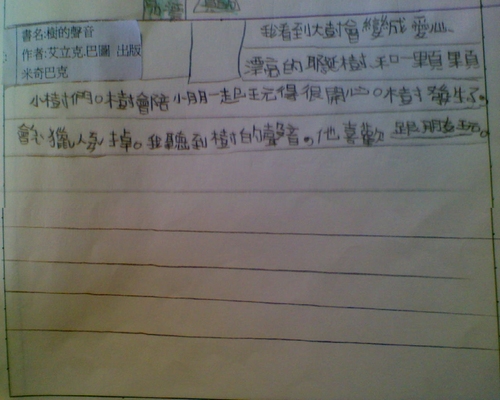 書名:樹的聲音
作者:艾立克.巴圖 出版
米奇巴克
我看到大樹會變成 愛心、
漂亮的聖誕樹、和一顆顆
小樹們。樹會陪小朋一起玩得很開心。樹發生了。
會 獵人 掉。我聽到樹的聲音。他喜歡 跟朋友玩。